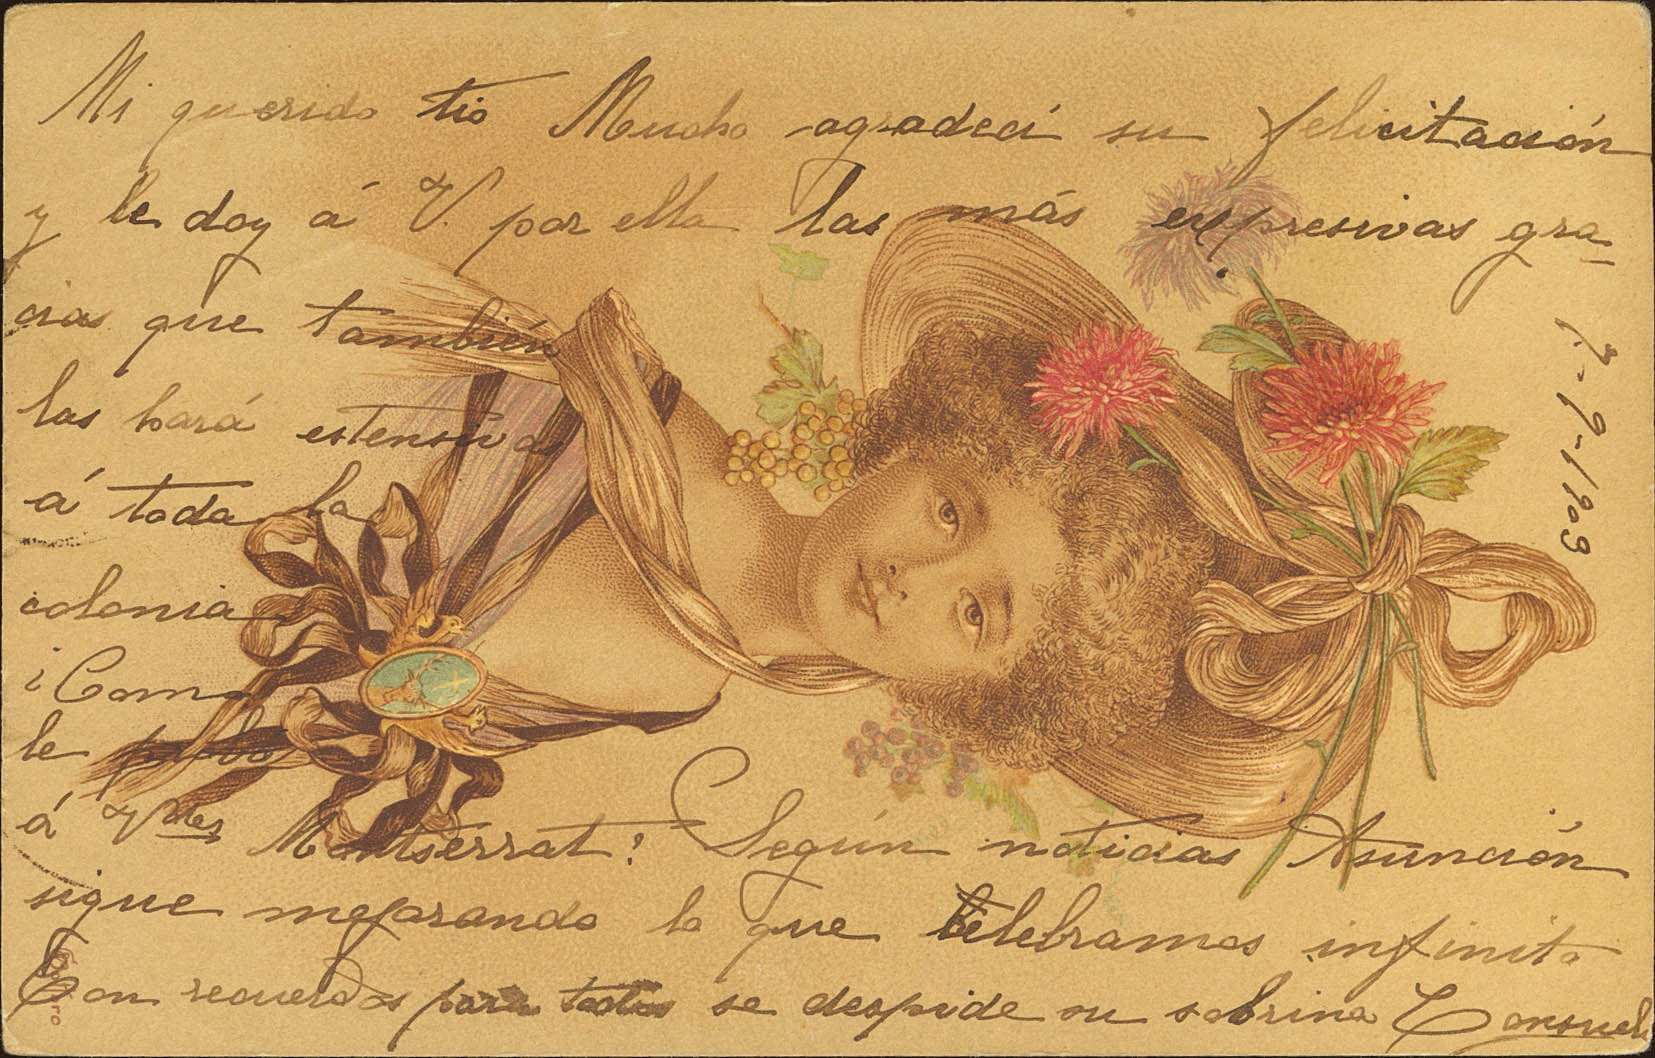 Mi querido tio Mucho agradeci su felicitación
y le doy á V. por ella las más expresivas gra
cias que también
las hará estensivas
á toda la
colonia
¿Como
le probo
á Vdes Montserrat? Según noticias Asunción
sigue mejorando lo que celebramos infinito
Con recuerdos para todos se despide su sobrina Consuelo
17-9-1903